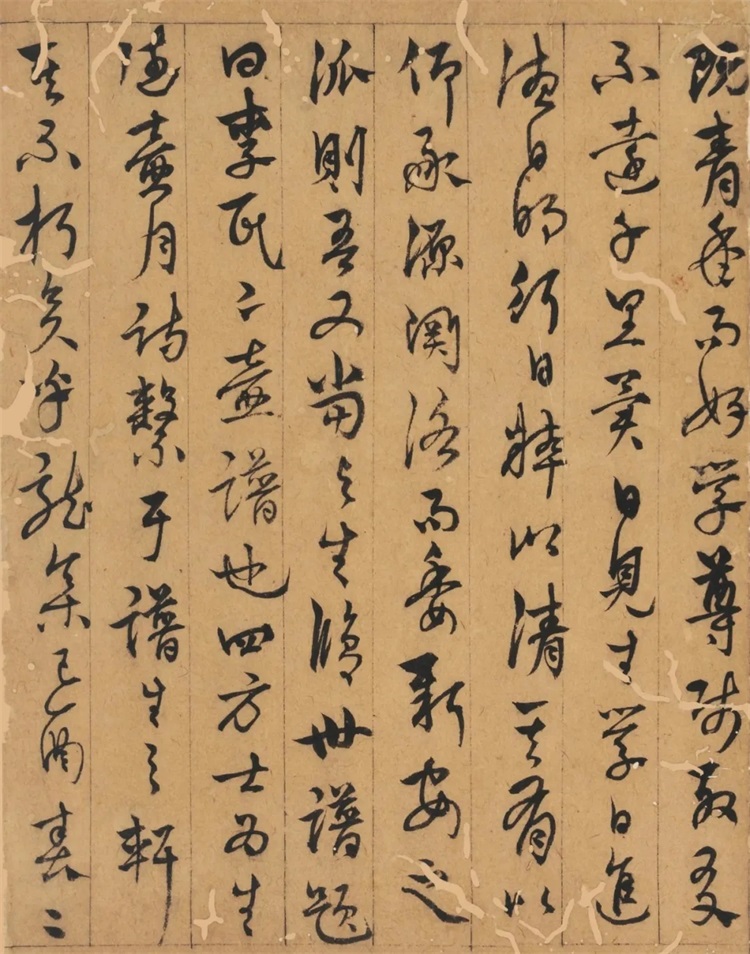 既青年而好學尊師敬友
不遠千里異日見生學日進
德日明行日粹以清其有以
仰承源關洛而委新安之
派則吾又當與生修世譜題
曰李氏二壺譜也四方士為生
壺月詩繫于譜生之軒
其不朽矣乎龍集己酉春二